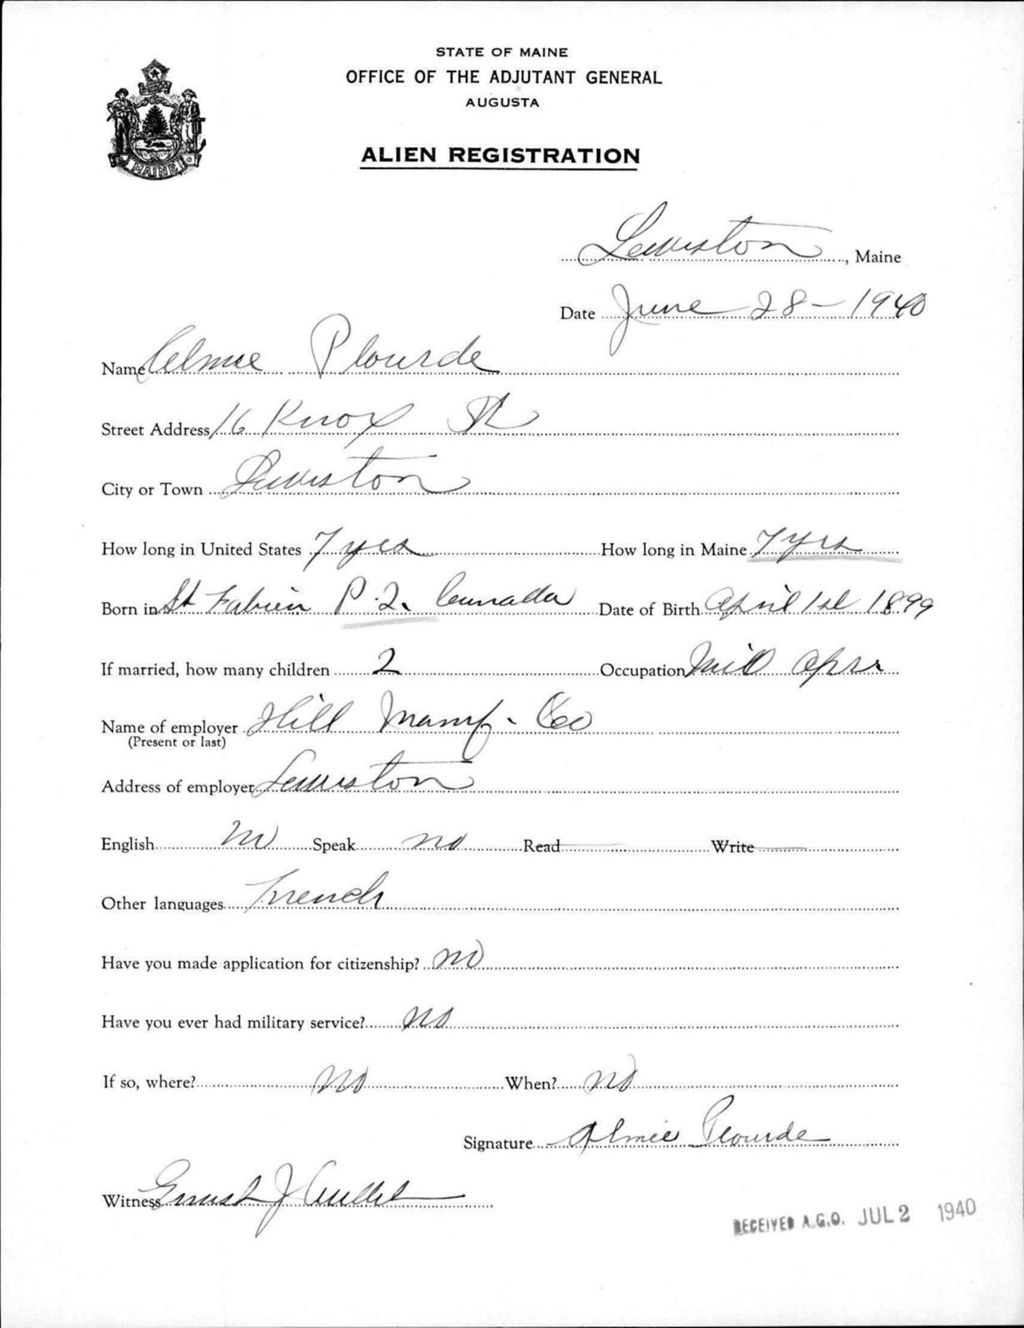 STATE OF MAINE
OFFICE OF THE ADJUTANT GENERAL
AUGUSTA
ALIEN REGISTRATION
MAINE
Lewiston, Maine
Date June 28 - 1940
Name Almie Plourde
Street Address 16 Knox St
City or Town Lewiston
How long in United States 7 yrs How long in Maine 7 yrs
Born in St Fabien P.Q. Canada Date of Birth April 1st 1899
If married, how many children 2 Occupation Mill Opr.
Name of employer Hill Manuf. Co
(Present or last)
Address of employer Lewiston
English no Speak no Read Write
Other languages French
Have you made application for citizenship? no
Have you ever had military service? no
If so, where? no When? no
Signature Almie Plourde
Witness J
RECEIVED A.G.O. JUL 2 1940